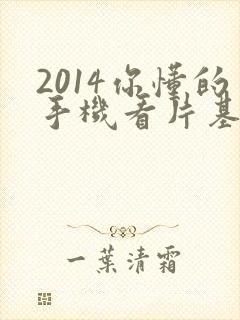 2014你懂的
手機看片基
一葉清霜